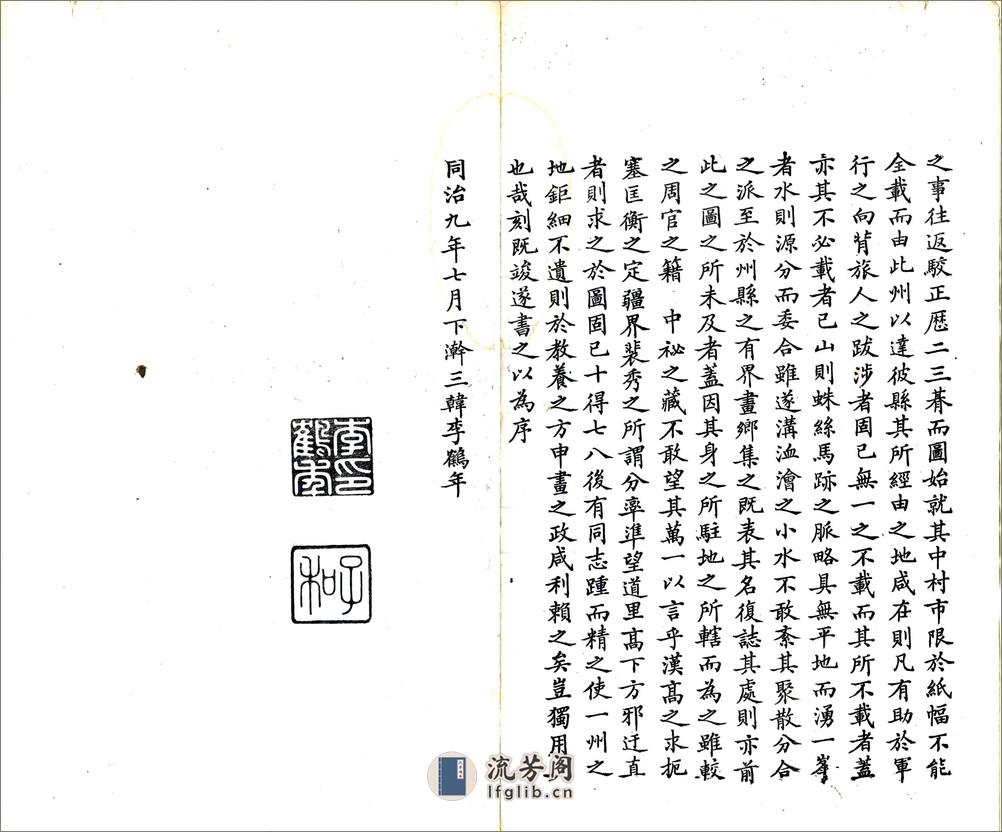 之事往返駮正歷二三朞而圖始就其中村市限於紙幅不能
全載而由此州以達彼縣其所經由之地咸在則凡有助於軍
行之向背旅人之跋涉者固已無一之不載而其所不載者蓋
亦其不必載者已山則蛛絲馬跡之脈略具無平地而湧一峯
者水則源分而委合雖遂溝洫澮之小水不敢紊其聚散分合
之派至於州縣之有界畫鄉集之既表其名復誌其處則亦前
此之圖之所未及者蓋因其身之所駐地之所轄而為之雖較
之周官之籍 中祕之藏不敢望其萬一以言乎漢高之求扼
塞匡衡之定疆界裴秀之所謂分率準望道里高下方邪迂直
者則求之於圖固已十得七八後有同志踵而精之使一州之
地鉅細不遺則於教養之方申畫之政咸利賴之矣豈獨用
也哉刻既竣遂書之以為序
同治九年七月下澣三韓李鶴年
李鶴年印
子和
流芳阁
lfglib.cn